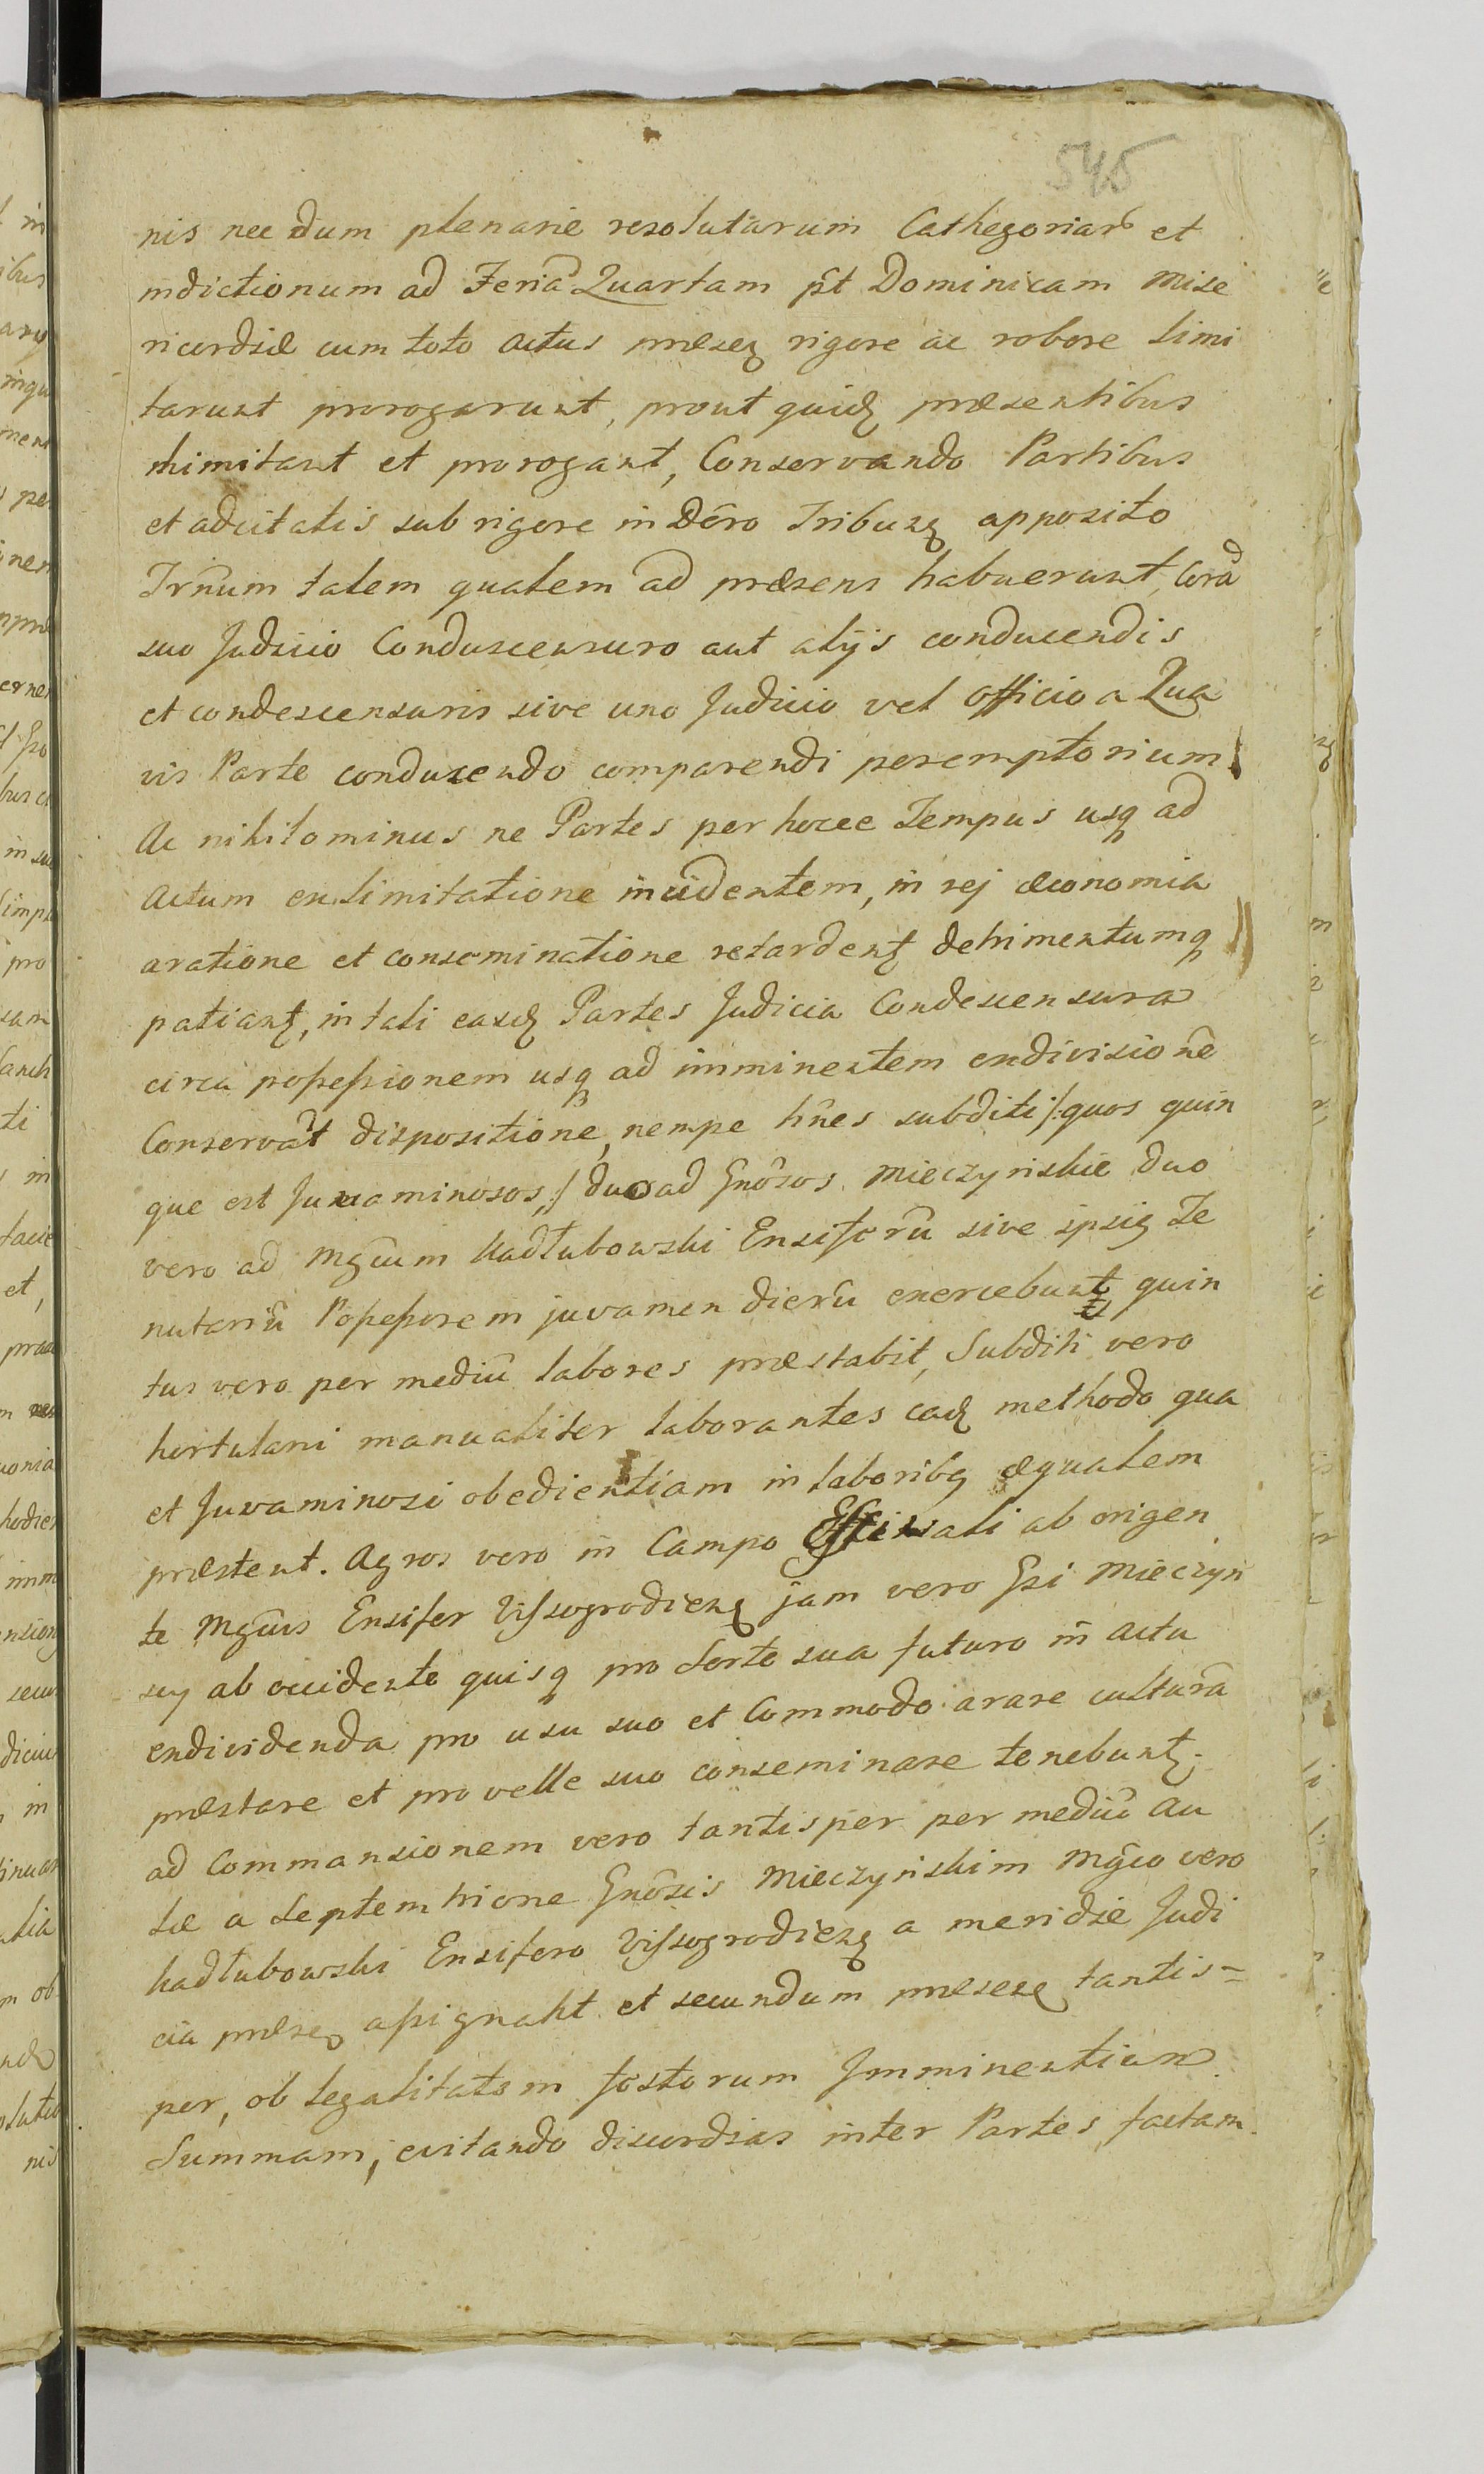 545
nis nec dum plenarie resolutarum Cathegoriarū et
indictionum ad Feriā Quartam pt̄ Dominicam Mise
ricordiæ cum toto actus præseņ rigore ac robore limi
tarunt prorogarunt, prout quidɇ præsentibus
limitant et prorogant, Conservando Partibus
et adcitatis sub rigore in Dēro Tribunɇ apposito
Trm̄um talem qualem ad præsens habuerunt, Corā
suo Judicio Conduscensuro aut alijs conducendis
et condescensuris sive uno Judicio vel Officio a Qua
vis Parte conducendo comparendi peremptorium
Ac nihilominus ne Partes per hocce Tempus usq ad
Actum exlimitatione incidentem, in rej æconomia
aratione et conseminatione retardentɇ detrimentumq
patiantɇ, in tali easdɇ Partes Judicia Condescensura
circa possessionem usq ad imminentem exdivisionē
Conservāt dispositione, nempe hn̄es subditi /:quos quin
que est Juvaminosos,:/ duos ad Gnōsos Mieczyńskie duo
vero ad Mgcum Kadłubowski Ensiferū sive ipsiɇ Te
nutariū Possessorem juvamen dierū exercebuntɇ, quin
tus vero per mediū labores præstabit, Subditi vero
hortulani manualiter laborantes eadɇ methodo qua
et Juvaminosi obedientiam in laboribɇ æqualem
præstent. Agros vero in Campo Æstivali ab origen
te Mgcus Ensifer Vissogrodienɇ jam vero Gsi Mieczyń
scy ab occidente quisq pro Sorte sua futuro in actu
exdividenda pro usu suo et Commodo arare culturā
præstare et pro velle suo conseminare tenebuntɇ.
ad Commansionem vero tantisper per mediū Au
læ a Septemtrione Gnōsis Mieczyńskim Mgco vero
Kadłubowski Ensifero Vissogrodienɇ a meridie Judi
cia præseɇ assignant et secundum præsenɇ tantis=
per, ob legalitatem festorum Imminentiam
Summam, evitando discordias inter Partes factam.